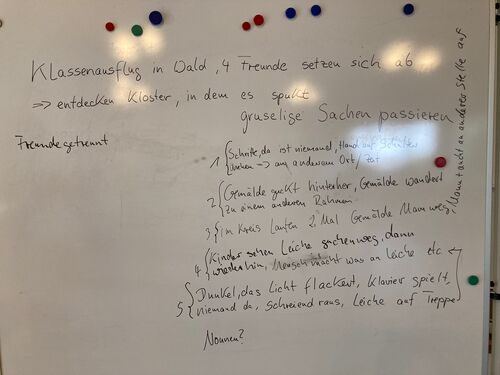 Klassenausflug in Wald, 4 Freunde setzen sich ab
=> entdecken Kloster, in dem es spukt
gruselige Sachen passieren
Freunde getrennt
1 { Schritte, da ist niemand, Hand auf Schulter
drehen -> an anderem Ort/Zeit
2 { Gemälde guckt hinterher, Gemälde wandert
zu einem anderen Rahmen
3 { im Kreis laufen 2. Mal Gemälde Mann weg,
Mann taucht an anderer Stelle auf
4 { Kinder sehen Leiche gucken weg, dann
wieder hin, Mensch macht was an Leiche etc.
5 { Dunkel, das Licht flackert, Klavier spielt,
niemand da, schreiend raus, Leiche auf Treppe
Nonnen?